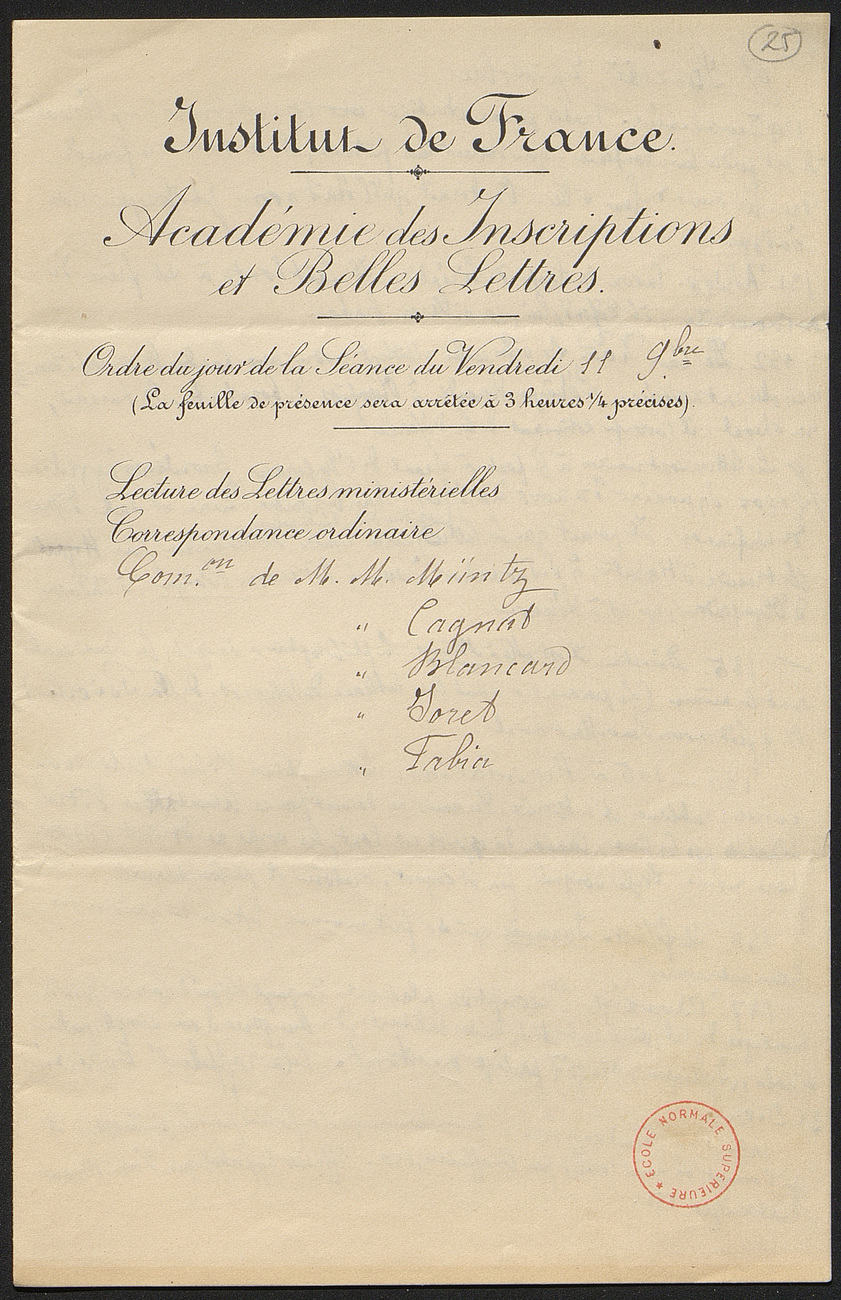 25
Institut de France.
Académie des Inscriptions
et Belles Lettres.
Ordre du jour de la Séance du Vendredi 11 9bre
(La feuille de présence sera arrêtée à 3 heures ¼ précises).
Lecture des Lettres ministérielles
Correspondance ordinaire
Com.on de M. M. Müntz
" Cagnat
" Blancard
" Joret
" Fabia
ECOLE NORMALE SUPERIEURE